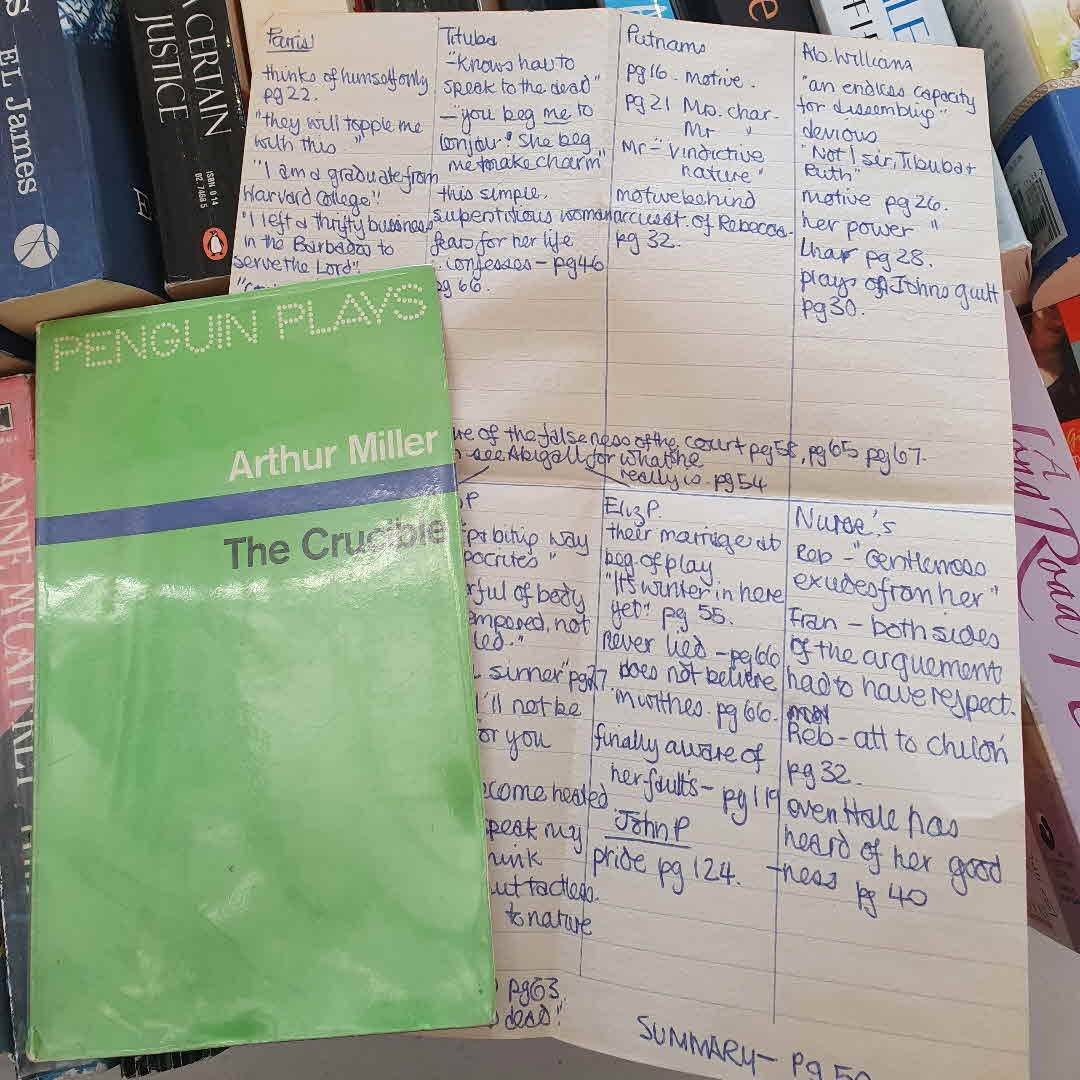 EL James
A CERTAIN
JUSTICE
ISBN 0 14
02.7468 5
ANNE McCAFFREY
A
Land
Road
Parris
thinks of humself only
pg 22.
"they will topple me
with this "
"I am a graduate from
Harvard College"
"I left a thrifty business
in the Barbados to
serve the Lord".
Tituba
"knows how to
speak to the dead"
– "you beg me to
conjour" She beg
me to make charm"
this simple,
superstitious woman
fears for her life
confesses – pg 46
pg 66.
Putnams
pg 16 - motive.
pg 21 Ms. char.
Mr "
Mr – "Vindictive
nature"
motive behind
accusat. of Rebecca.
pg 32.
Ab. Williams
"an endless capacity
for dissembling"
devious
"Not I sir, Tibuba &
Ruth"
motive pg 26.
her power "
char pg 28.
plays of Johns guilt
pg 30.
PENGUIN PLAYS
Arthur Miller
The Crucible
of the falseness of the court pg 58, pg 65 pg 67.
see Abigail for what she
really is. pg 54
P
biting way
pocrites"
ful of body
mposed, not
led."
sinner" pg 77.
'll not be
or you
come heated
peak my
hink
ut tactless.
to nature
pg 63,
dead"
Eliz P.
their marriage at
beg of play.
"It's winter in here
yet" pg 55.
never lied – pg 66
does not believe
in withes. pg 66.
finally aware of
her faults – pg 119
John P
pride pg 124.
Nurse's
Reb – "Gentleness
exudes from her"
Fran – both sides
of the arguement
had to have respect.
Reb – att to chilon
pg 32.
even Hale has
heard of her good
-ness pg 40
SUMMARY – pg 50